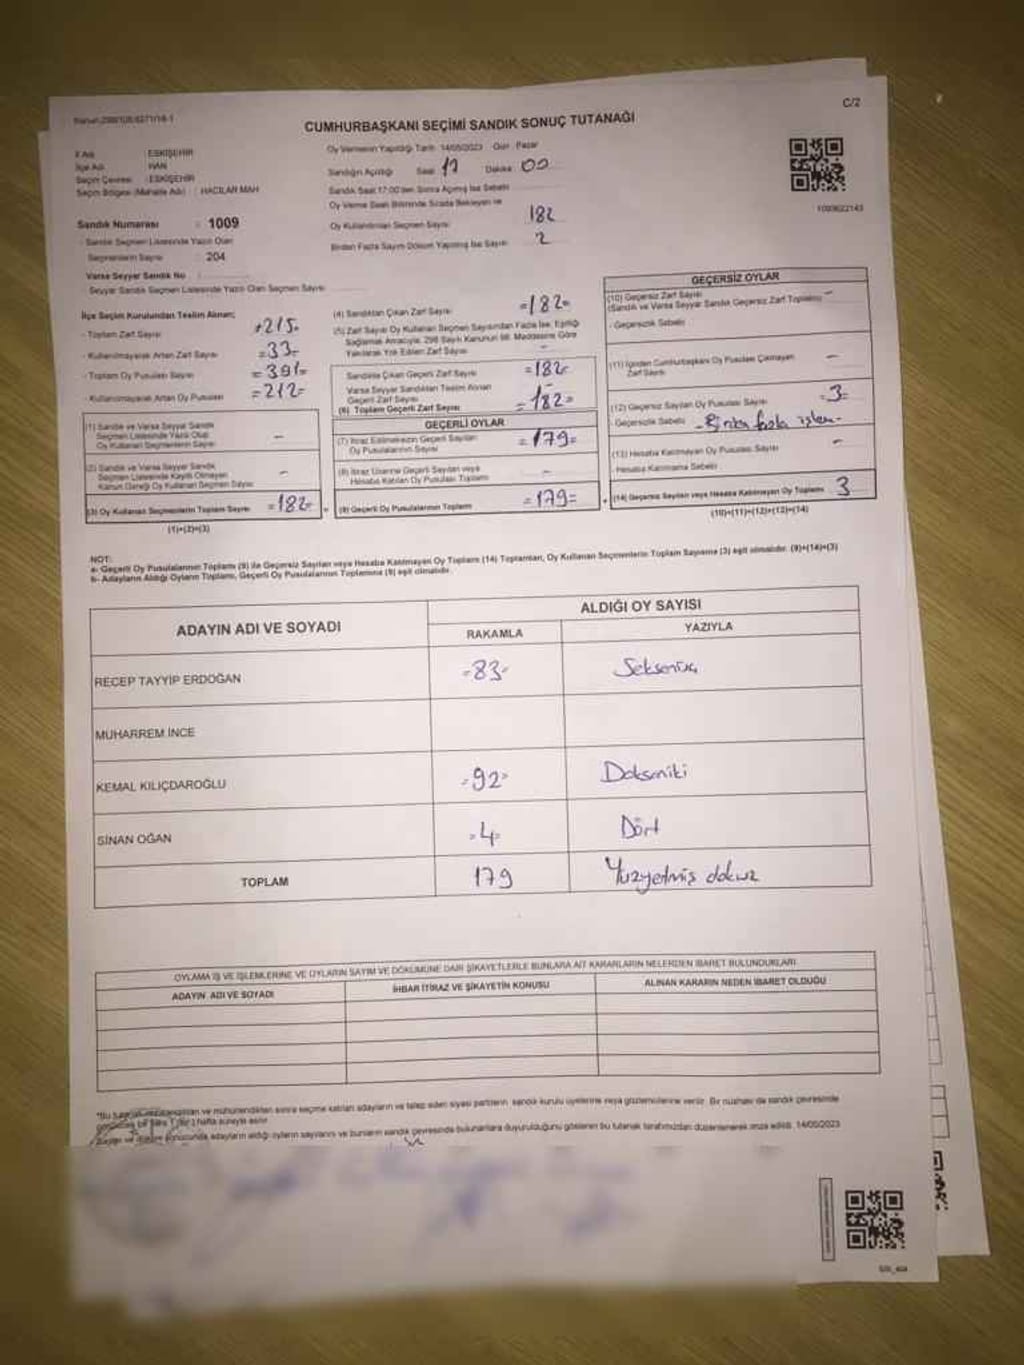 C/2
CUMHURBAŞKANI SEÇİMİ SANDIK SONUÇ TUTANAĞI
İl Adı : ESKİŞEHİR
İlçe Adı : HAN
Seçim Çevresi : ESKİŞEHİR
Seçim Bölgesi (Mahalle Adı) : HACILAR MAH
Sandık Numarası : 1009
- Sandık Seçmen Listesinde Yazılı Olan
Seçmenlerin Sayısı : 204
Varsa Seyyar Sandık No :
Seyyar Sandık Seçmen Listesinde Yazılı Olan Seçmen Sayısı :
Oy Vermenin Yapıldığı Tarih: 14/05/2023 Gün: Pazar
Sandığın Açıldığı Saat 17 Dakika: 00
Sandık Saat 17:00'den Sonra Açılmış İse Sebebi
Oy Verme Saati Bitiminde Sırada Bekleyen ve
Oy Kullandırılan Seçmen Sayısı 182
Birden Fazla Sayım Döküm Yapılmış İse Sayısı 2
1090622143
İlçe Seçim Kurulundan Teslim Alınan;
- Toplam Zarf Sayısı =215=
- Kullanılmayarak Artan Zarf Sayısı =33=
- Toplam Oy Pusulası Sayısı =391=
- Kullanılmayarak Artan Oy Pusulası =212=
(1) Sandık ve Varsa Seyyar Sandık
Seçmen Listesinde Yazılı Olup
Oy Kullanan Seçmenlerin Sayısı -
(2) Sandık ve Varsa Seyyar Sandık
Seçmen Listesinde Kayıtlı Olmayan
Kanun Gereği Oy Kullanan Seçmen Sayısı -
(3) Oy Kullanan Seçmenlerin Toplam Sayısı =182=
(1)+(2)=(3)
(4) Sandıktan Çıkan Zarf Sayısı =182=
(5) Zarf Sayısı Oy Kullanan Seçmen Sayısından Fazla İse, Eşitliği
Sağlamak Amacıyla, 298 Sayılı Kanunun 98. Maddesine Göre
Yakılarak Yok Edilen Zarf Sayısı -
Sandıkta Çıkan Geçerli Zarf Sayısı =182=
Varsa Seyyar Sandıktan Teslim Alınan
Geçerli Zarf Sayısı -
(6) Toplam Geçerli Zarf Sayısı =182=
GEÇERLİ OYLAR
(7) İtiraz Edilmeksizin Geçerli Sayılan
Oy Pusulalarının Sayısı =179=
(8) İtiraz Üzerine Geçerli Sayılan veya
Hesaba Katılan Oy Pusulası Toplamı -
(9) Geçerli Oy Pusulalarının Toplamı =179=
GEÇERSİZ OYLAR
(10) Geçersiz Zarf Sayısı -
(Sandık ve Varsa Seyyar Sandık Geçersiz Zarf Toplamı)
- Geçersizlik Sebebi
(11) İçinden Cumhurbaşkanı Oy Pusulası Çıkmayan
Zarf Sayısı -
(12) Geçersiz Sayılan Oy Pusulası Sayısı =3=
- Geçersizlik Sebebi - Birden fazla işlem -
(13) Hesaba Katılmayan Oy Pusulası Sayısı -
- Hesaba Katılmama Sebebi
(14) Geçersiz Sayılan veya Hesaba Katılmayan Oy Toplamı 3
(10)+(11)+(12)+(13)=(14)
NOT:
a- Geçerli Oy Pusulalarının Toplamı (9) ile Geçersiz Sayılan veya Hesaba Katılmayan Oy Toplamı (14) Toplamları, Oy Kullanan Seçmenlerin Toplam Sayısına (3) eşit olmalıdır. (9)+(14)=(3)
b- Adayların Aldığı Oyların Toplamı, Geçerli Oy Pusulalarının Toplamına (9) eşit olmalıdır.
ADAYIN ADI VE SOYADI
ALDIĞI OY SAYISI
RAKAMLA YAZIYLA
RECEP TAYYİP ERDOĞAN =83= Seksenüç
MUHARREM İNCE
KEMAL KILIÇDAROĞLU =92= Doksaniki
SİNAN OĞAN =4= Dört
TOPLAM 179 Yüzyetmiş dokuz
OYLAMA İŞ VE İŞLEMLERİNE VE OYLARIN SAYIM VE DÖKÜMÜNE DAİR ŞİKAYETLERLE BUNLARA AİT KARARLARIN NELERDEN İBARET BULUNDUKLARI
ADAYIN ADI VE SOYADI İHBAR İTİRAZ VE ŞİKAYETİN KONUSU ALINAN KARARIN NEDEN İBARET OLDUĞU
ve mühürlendikten sonra seçime katılan adayların ve talep eden siyasi partilerin sandık kurulu üyelerine veya gözlemcilerine verilir. Bir nüshası da sandık çevresinde
hafta süreyle asılır.
sonucunda adayların aldığı oyların sayılarını ve bunların sandık çevresinde bulunanlara duyurulduğunu gösteren bu tutanak tarafımızdan düzenlenerek imza edildi. 14/05/2023